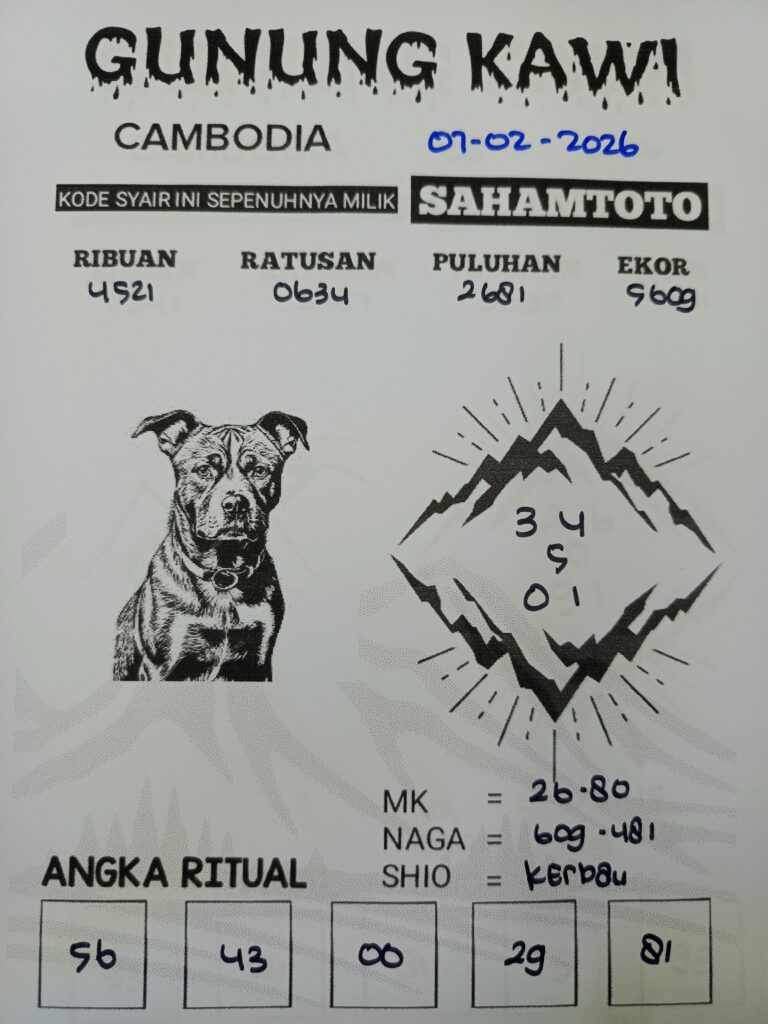 GUNUNG KAWI
CAMBODIA 07-02-2026
KODE SYAIR INI SEPENUHNYA MILIK SAHAMTOTO
RIBUAN RATUSAN PULUHAN EKOR
4521 0634 2681 5609
3 4
5
0 1
MK = 26.80
NAGA = 609.481
SHIO = Kerbau
ANGKA RITUAL
56 43 00 29 81